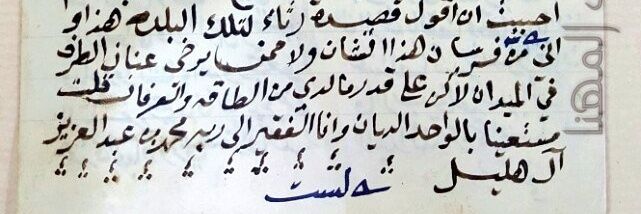 احببت ان اقول قصيدة رثاء لتلك البلدة هذا وا
اني لست من فرسان هذا الشان ولا ممن يرخى عنان الطرف
في الميدان لاكن على قدر ما لدي من الطاقه والعرفان قلت
مستعينا بالواحد الديان وانا الفقير الى ربه محمد بن عبد العزيز
آل هليل
لست
المهنا